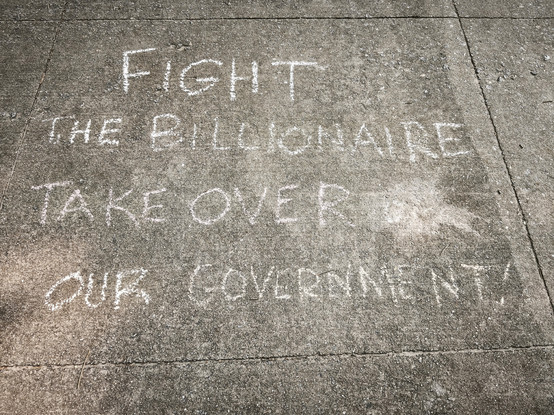 FIGHT
THE BILLIONAIRE
TAKE OVER
OUR GOVERNMENT!